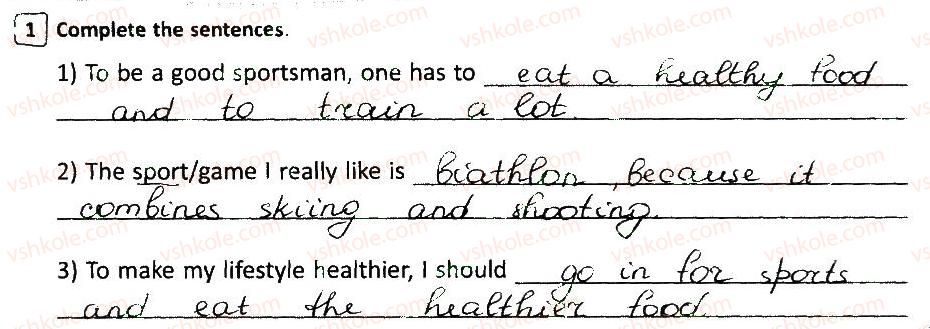 1 Complete the sentences.
1) To be a good sportsman, one has to eat a healthy food
and to train a lot.
2) The sport/game I really like is biathlon, because it
combines skiing and shooting.
3) To make my lifestyle healthier, I should go in for sports
and eat the healthier food.